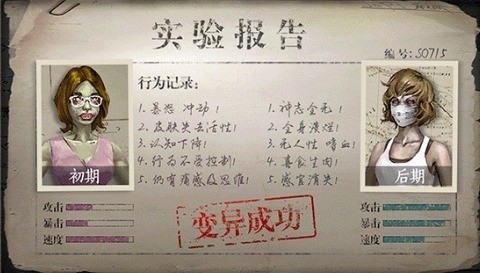 实验报告
编号:S0715
行为记录:
1.暴怒 冲动!
2.皮肤失去活性!
3.认知下降!
4.行为不受控制!
5.仍有痛感及思维!
1.神志全无!
2.全身溃烂!
3.无人性 嗜血!
4.喜食生肉!
5.感官消失!
初期
后期
攻击
暴击
速度
攻击
暴击
速度
变异成功